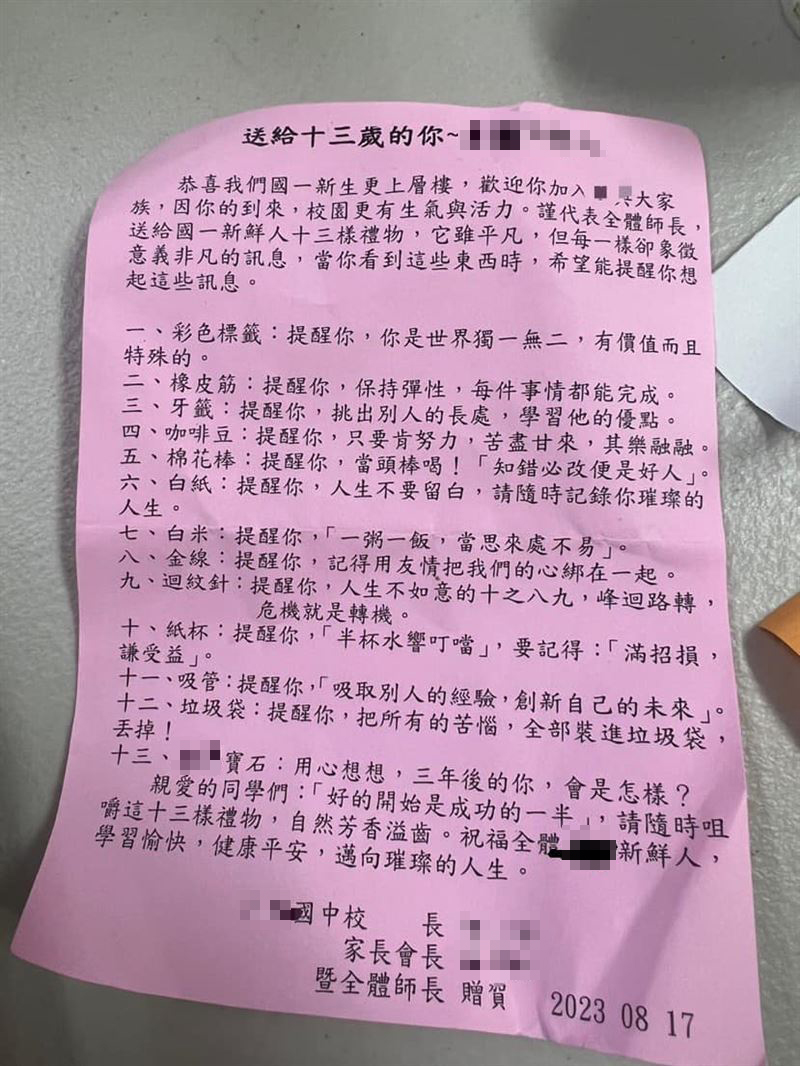 送給十三歲的你~
恭喜我們國一新生更上層樓，歡迎你加入大家
族，因你的到來，校園更有生氣與活力。謹代表全體師長，
送給國一新鮮人十三樣禮物，它雖平凡，但每一樣卻象徵
意義非凡的訊息，當你看到這些東西時，希望能提醒你想
起這些訊息。
一、彩色標籤：提醒你，你是世界獨一無二，有價值而且
特殊的。
二、橡皮筋：提醒你，保持彈性，每件事情都能完成。
三、牙籤：提醒你，挑出別人的長處，學習他的優點。
四、咖啡豆：提醒你，只要肯努力，苦盡甘來，其樂融融。
五、棉花棒：提醒你，當頭棒喝！「知錯必改便是好人」。
六、白紙：提醒你，人生不要留白，請隨時記錄你璀璨的
人生。
七、白米：提醒你，「一粥一飯，當思來處不易」。
八、金線：提醒你，記得用友情把我們的心綁在一起。
九、迴紋針：提醒你，人生不如意的十之八九，峰迴路轉，
危機就是轉機。
十、紙杯：提醒你，「半杯水響叮噹」，要記得：「滿招損，
謙受益」。
十一、吸管：提醒你，「吸取別人的經驗，創新自己的未來」。
十二、垃圾袋：提醒你，把所有的苦惱，全部裝進垃圾袋，
丟掉！
十三、寶石：用心想想，三年後的你，會是怎樣？
親愛的同學們：「好的開始是成功的一半」，請隨時咀
嚼這十三樣禮物，自然芳香溢齒。祝福全體新鮮人，
學習愉快，健康平安，邁向璀璨的人生。
國中校 長
家長會長
暨全體師長 贈賀
2023 08 17